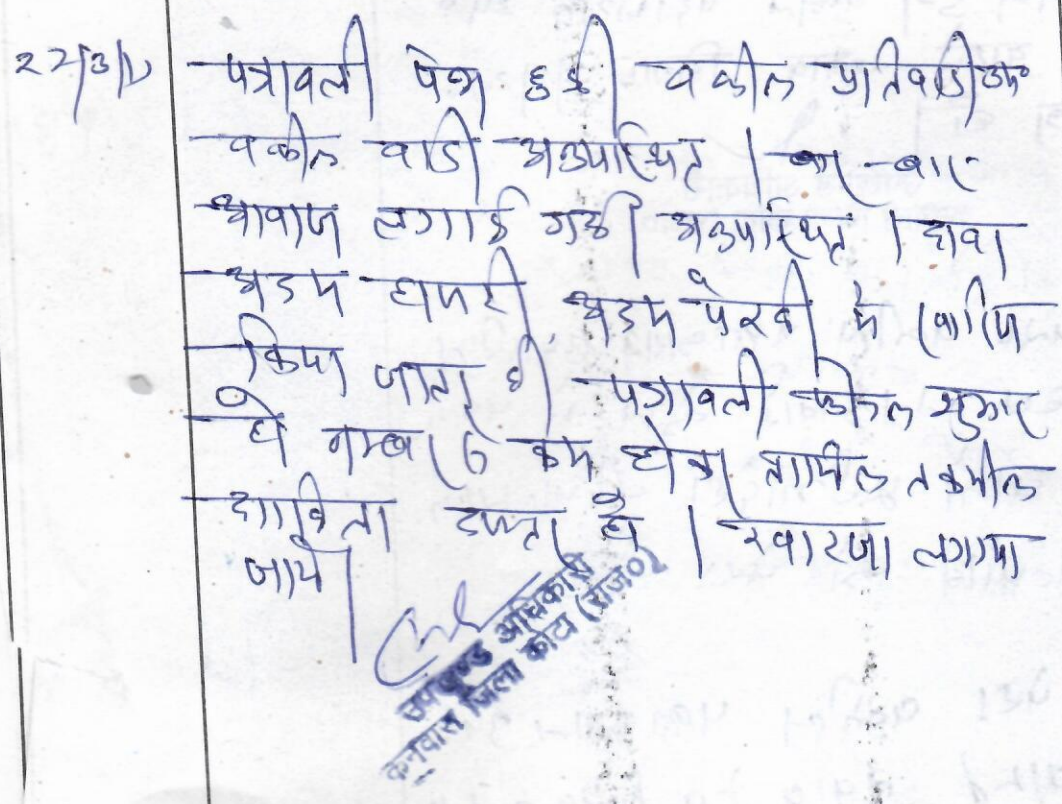 22/3/
पत्रावली पेश हुई वकील प्रतिवादी उप०
वकील वादी अनुपस्थित । बार-बार
आवाज लगाई गई अनुपस्थित । दावा
अदम हाजरी अदम पैरवी में खारिज
किया जाता है पत्रावली फैसल शुमार
हो नम्बर से कम होकर तामील तकमील
दाखिल दफ्तर हो । खारजा लगाया
जाये ।
उपखण्ड अधिकारी
कनवास जिला कोटा (राज०)